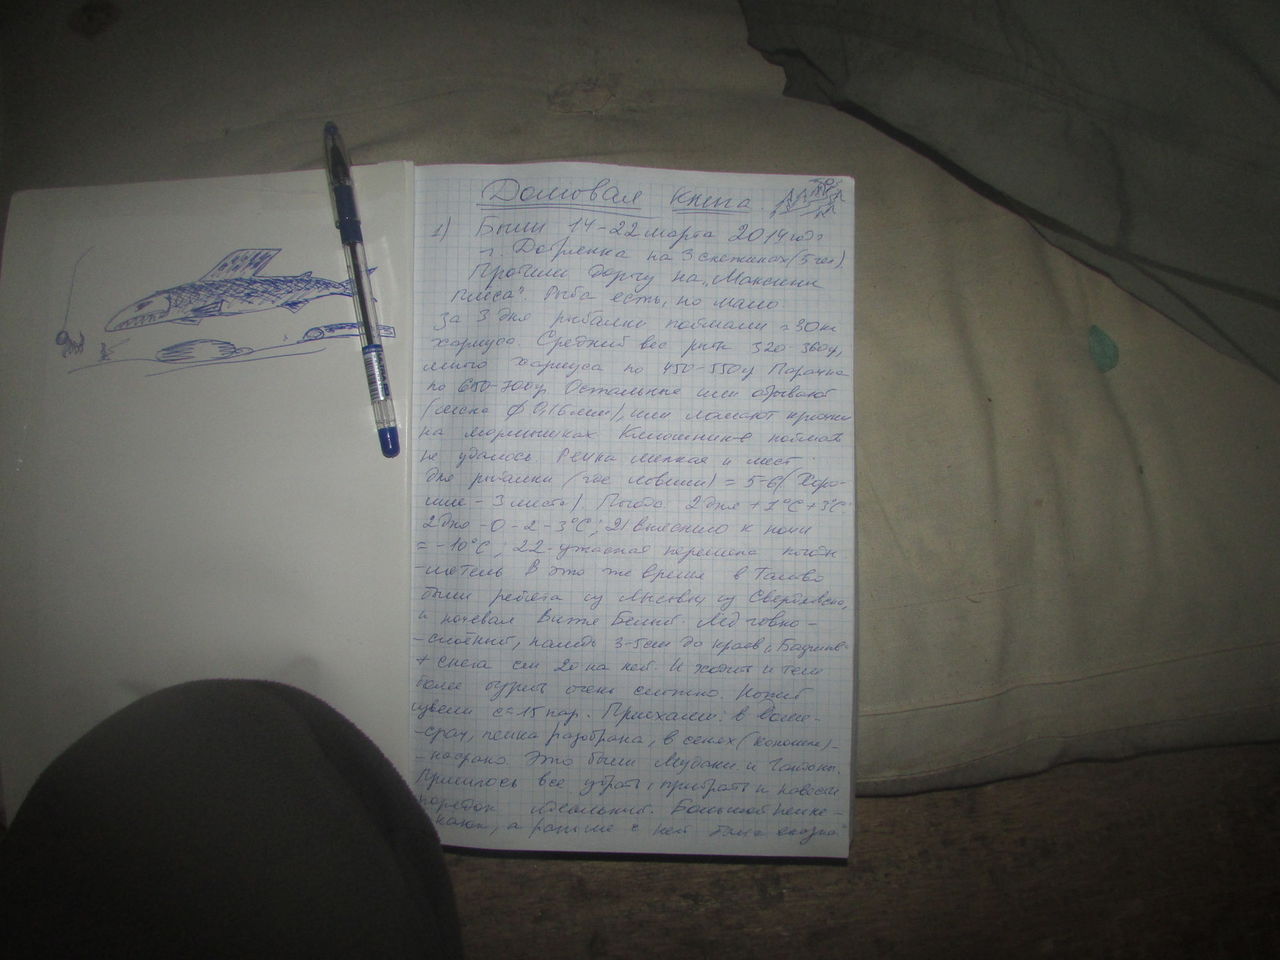 Домовая книга
1) Были 14-22 марта 2014 года
г. Добрянка на 3 снежиках (5 чел).
Пробили дорогу на „Максим
плёса". Рыба есть, но мало
За 3 дня рыбалки поймали ≈ 30 кг
хариуса. Средний вес рыбы 320-360г,
много хариуса по 450-550г Парочка
по 650-700г. Остальные или обрывают
(леска ф 0,16мм), или ломают крючки
на мормышках. поймать
не удалось. Речка мелкая и мест
для рыбалки (где ловили) = 5-6 (Хоро-
шие - 3 места). Погода: 2 дня +1°С+3°С
2 дня -0-2-3°С; 21 выяснило к ночи
= -10°С; 22-ужасная перемена
-метель В это же время в
были ребята из Лысьвы из Свердловска,
и ночевал Витя Белый. Лёд
-слоёный, наледь 3-5см до краёв
+ снега см 20 на ней. И ходить и тем
более бурить очень сложно.
увели с ≈15 пар. Приехали: в доме-
-срач, печка разобрана, в сенях
-насрано. Это были Мудаки и Гандоны.
Пришлось все убрать, прибрать и навести
порядок идеальный. Большой печке-
а раньше с ней была